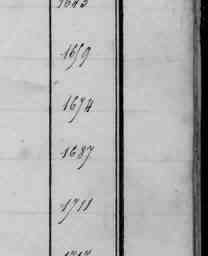 1659
1674
1687
1711